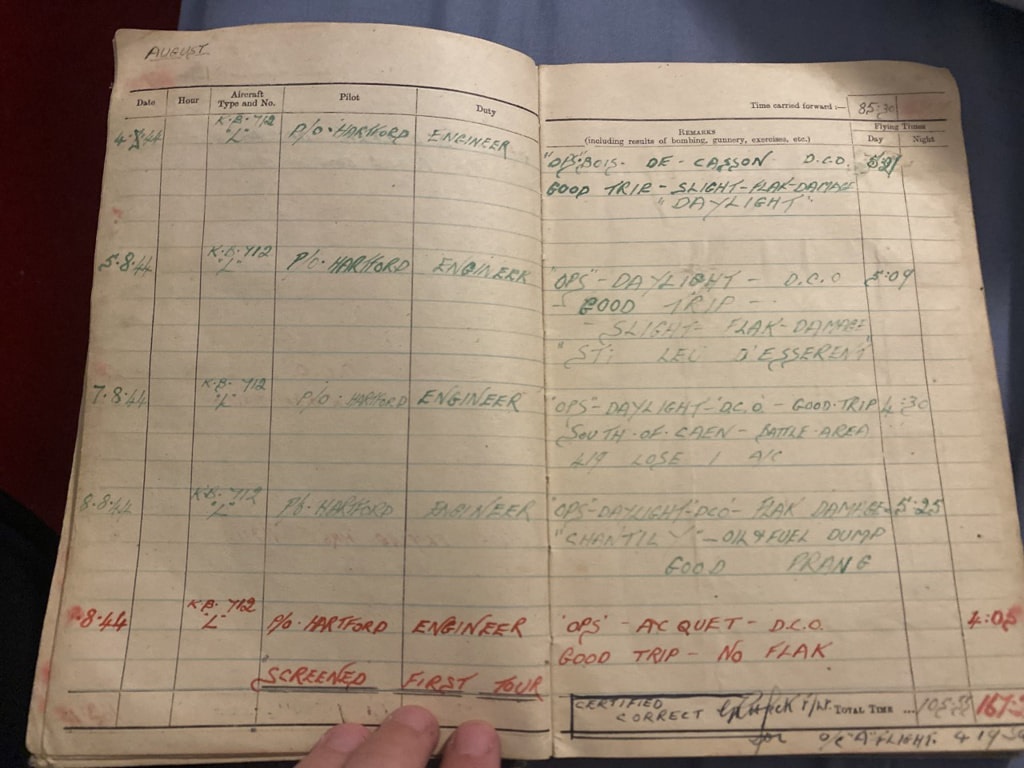 AUGUST
Date Hour Aircraft Type and No. Pilot Duty
Time carried forward :— 85:30
REMARKS
(including results of bombing, gunnery, exercises, etc.)
Flying Times
Day Night
4.8.44 K.B. 712 "L" P/O. HARTFORD ENGINEER
"OPS" BOIS- DE- CASSON D.C.O.
GOOD TRIP - SLIGHT-FLAK-DAMAGE
"DAYLIGHT"
5.8.44 K.B. 712 "L" P/O. HARTFORD ENGINEER
"OPS" - DAYLIGHT - D.C.O 5:09
- GOOD TRIP -
- SLIGHT- FLAK-DAMAGE
"ST: LEU D'ESSERENT"
7.8.44 K.B. 712 "L" P/O. HARTFORD ENGINEER
"OPS"-DAYLIGHT-D.C.O. - GOOD-TRIP 4:30
SOUTH-OF-CAEN - BATTLE-AREA
419 LOSE 1 A/C
8.8.44 K.B. 712 "L" P/O. HARTFORD ENGINEER
"OPS-DAYLIGHT-DCO- FLAK DAMAGE- 5:25
"CHANTILY" - OIL & FUEL DUMP
GOOD PRANG
.8.44 K.B. 712 "L" P/O. HARTFORD ENGINEER
"OPS" - ACQUET - D.C.O. 4:05
GOOD TRIP - NO FLAK
SCREENED FIRST TOUR
CERTIFIED
CORRECT F/Lt. TOTAL TIME ....
for O/C "A" FLIGHT. 419